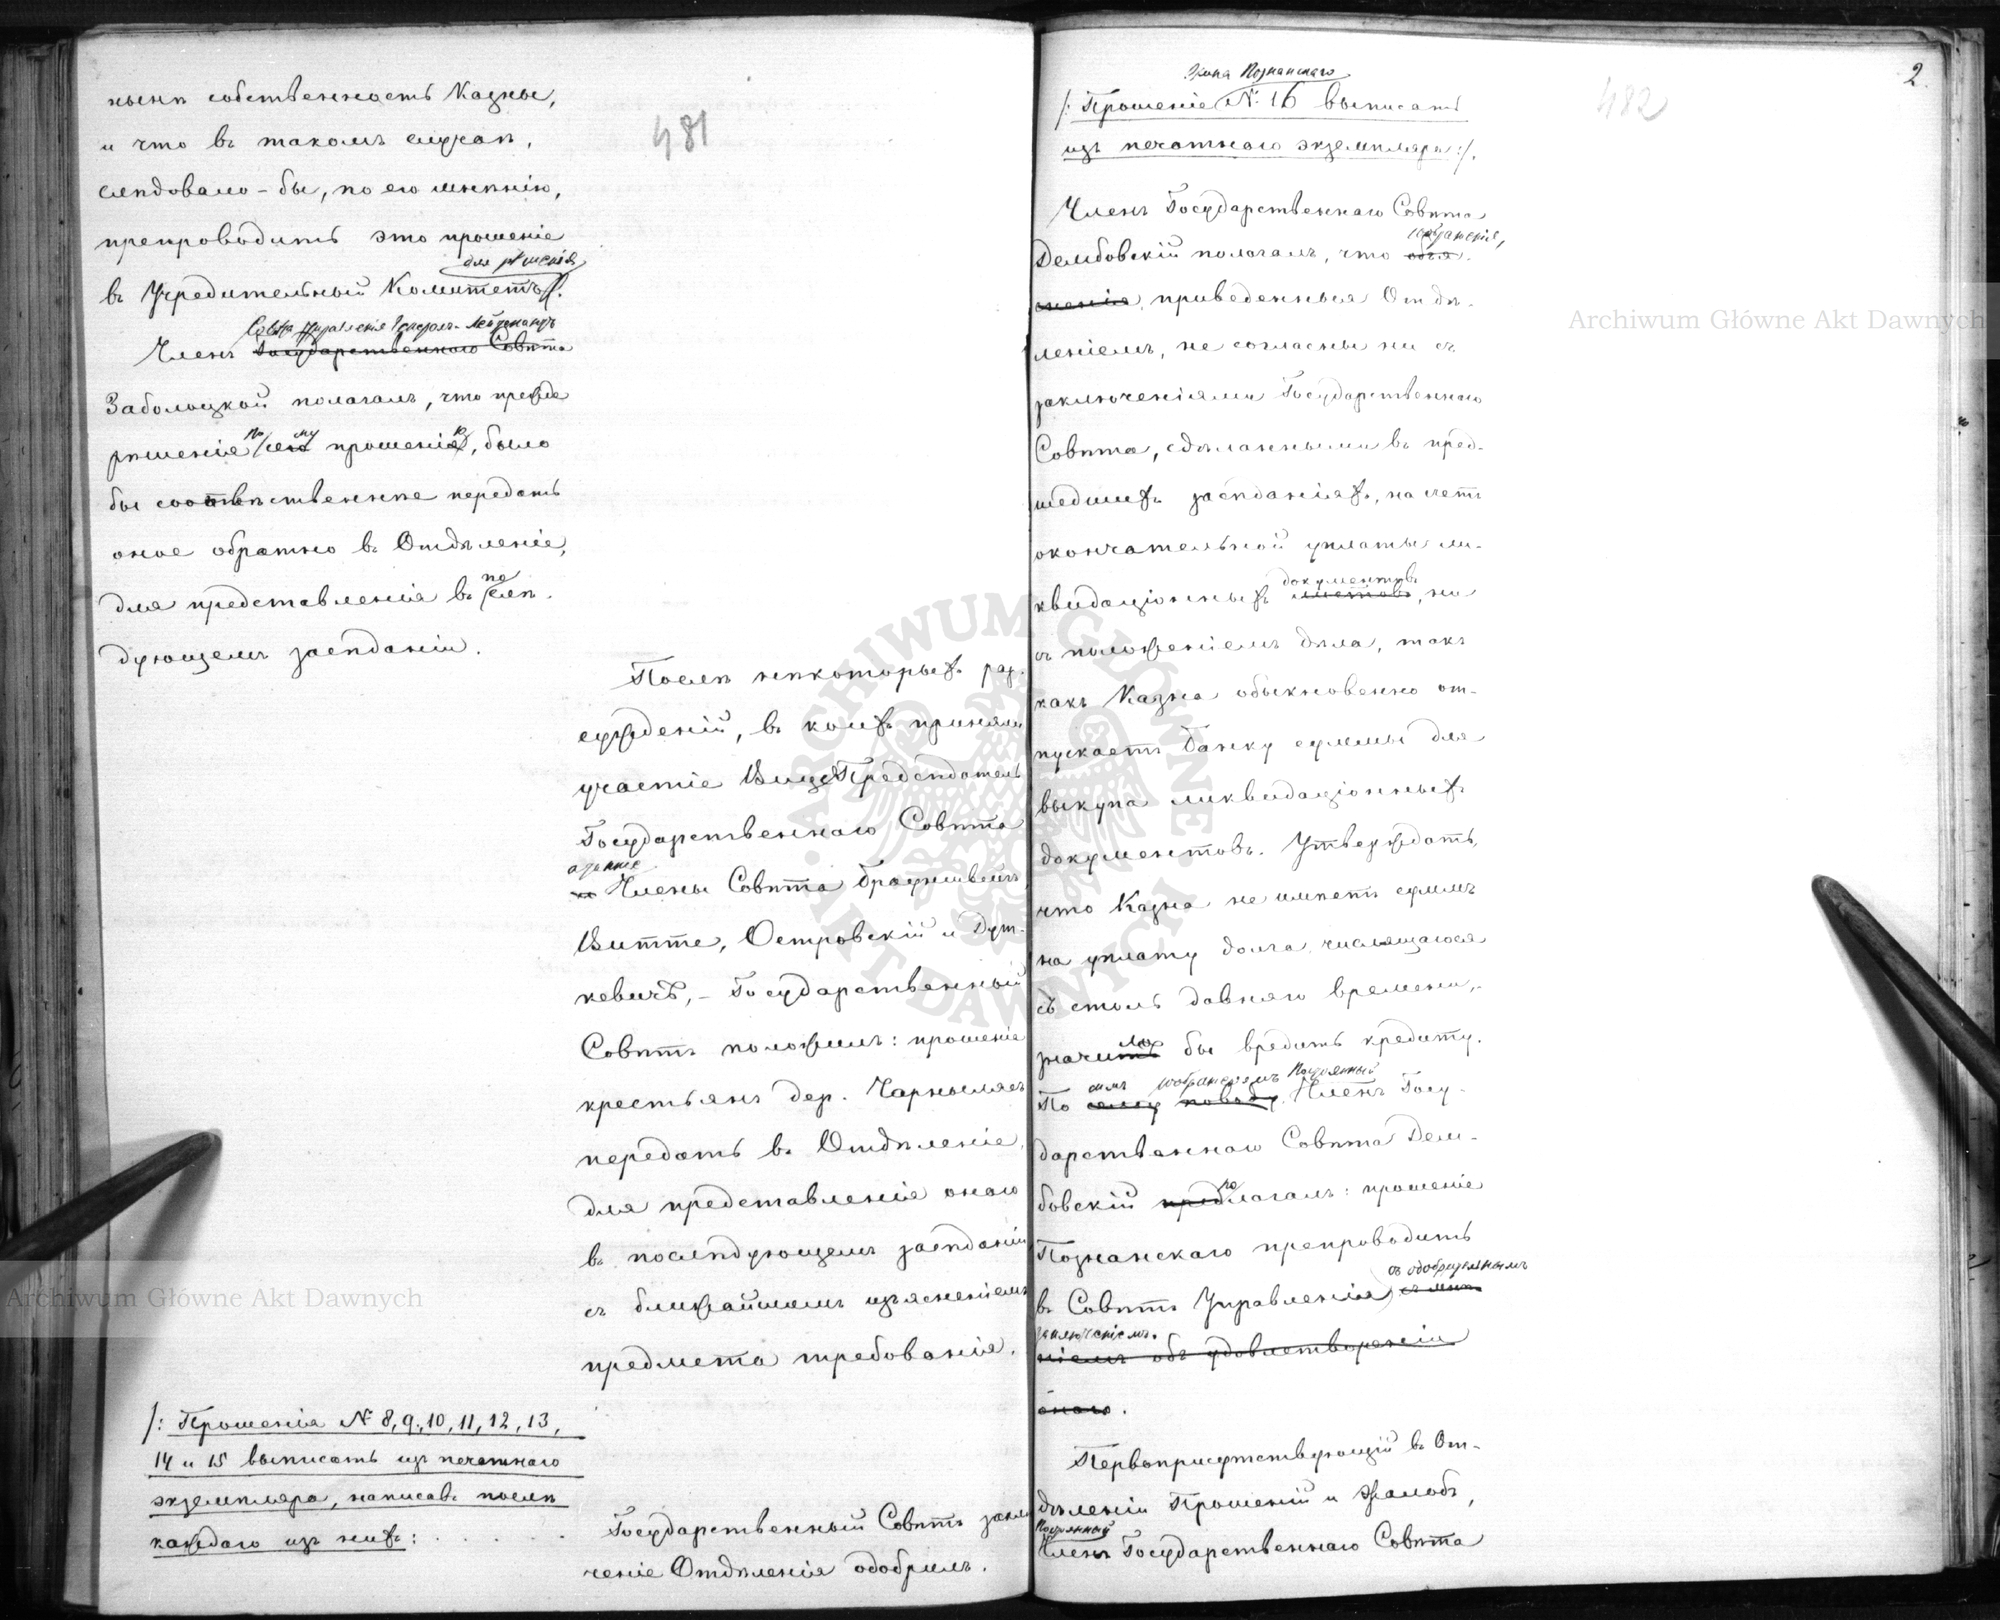 481
нынѣ собственность Казны,
и что въ такомъ случаѣ,
слѣдовало-бы, по его мнѣнію,
препроводить это прошеніе
для рѣшенія
въ Учредительный Комитетъ.
Совѣта Управленія Генералъ-Лейтенантъ
Членъ Государственнаго Совѣта
Заболоцкой полагалъ, что прежде
рѣшенія по сему прошенію, было
бы соотвѣтственнѣе передать
оное обратно въ Отдѣленіе,
для представленія въ послѣ-
дующемъ засѣданіи.
Послѣ нѣкоторыхъ раз-
сужденій, въ коихъ приняли
участіе Вице-Предсѣдатель
Государственнаго Совѣта
а равно
и Члены Совѣта Брауншвейгъ,
Витте, Островскій и Дут-
кевичъ, – Государственный
Совѣтъ положилъ: прошеніе
крестьянъ дер. Чарнылясъ
передать въ Отдѣленіе,
для представленія онаго
въ послѣдующемъ засѣданіи
съ ближайшимъ изъясненіемъ
предмета требованія.
/: Прошенія № 8, 9, 10, 11, 12, 13,
14 и 15 выписать изъ печатнаго
экземпляра, написавъ послѣ
каждаго изъ нихъ: . . . .
Государственный Совѣтъ заклю
ченіе Отдѣленія одобрилъ.
2.
482
Познанскаго
/: Прошеніе № 16 выписать
изъ печатнаго экземпляра :/.
Членъ Государственнаго Совѣта
Дембовскій полагалъ, что
приведенныя Отдѣ-
леніемъ, не согласны ни съ
заключеніями Государственнаго
Совѣта, сдѣланными въ пред-
шедшихъ засѣданіяхъ, на счетъ
окончательной уплаты ли-
документовъ
квидаціонныхъ листовъ, ни
съ положеніемъ дѣла, такъ
какъ Казна обыкновенно от-
пускаетъ Банку суммы для
выкупа ликвидаціонныхъ
документовъ. Утверждать,
что Казна не имѣетъ суммъ
на уплату долга, числящагося
съ столь давняго времени,
значило бы вредить кредиту.
симъ Постоянный
По сему поводу, Членъ Госу-
дарственнаго Совѣта Дем-
бовскій полагалъ: прошеніе
Познанскаго препроводить
съ одобрительнымъ
въ Совѣтъ Управленія, съ мнѣ-
заключеніемъ.
ніемъ объ удовлетвореніи
онаго.
Первоприсутствующій въ От-
дѣленіи Прошеній и Жалобъ,
Постоянный
Членъ Государственнаго Совѣта
Archiwum Główne Akt Dawnych
Archiwum Główne Akt Dawnych
ARCHIWUM GŁÓWNE
AKT DAWNYCH